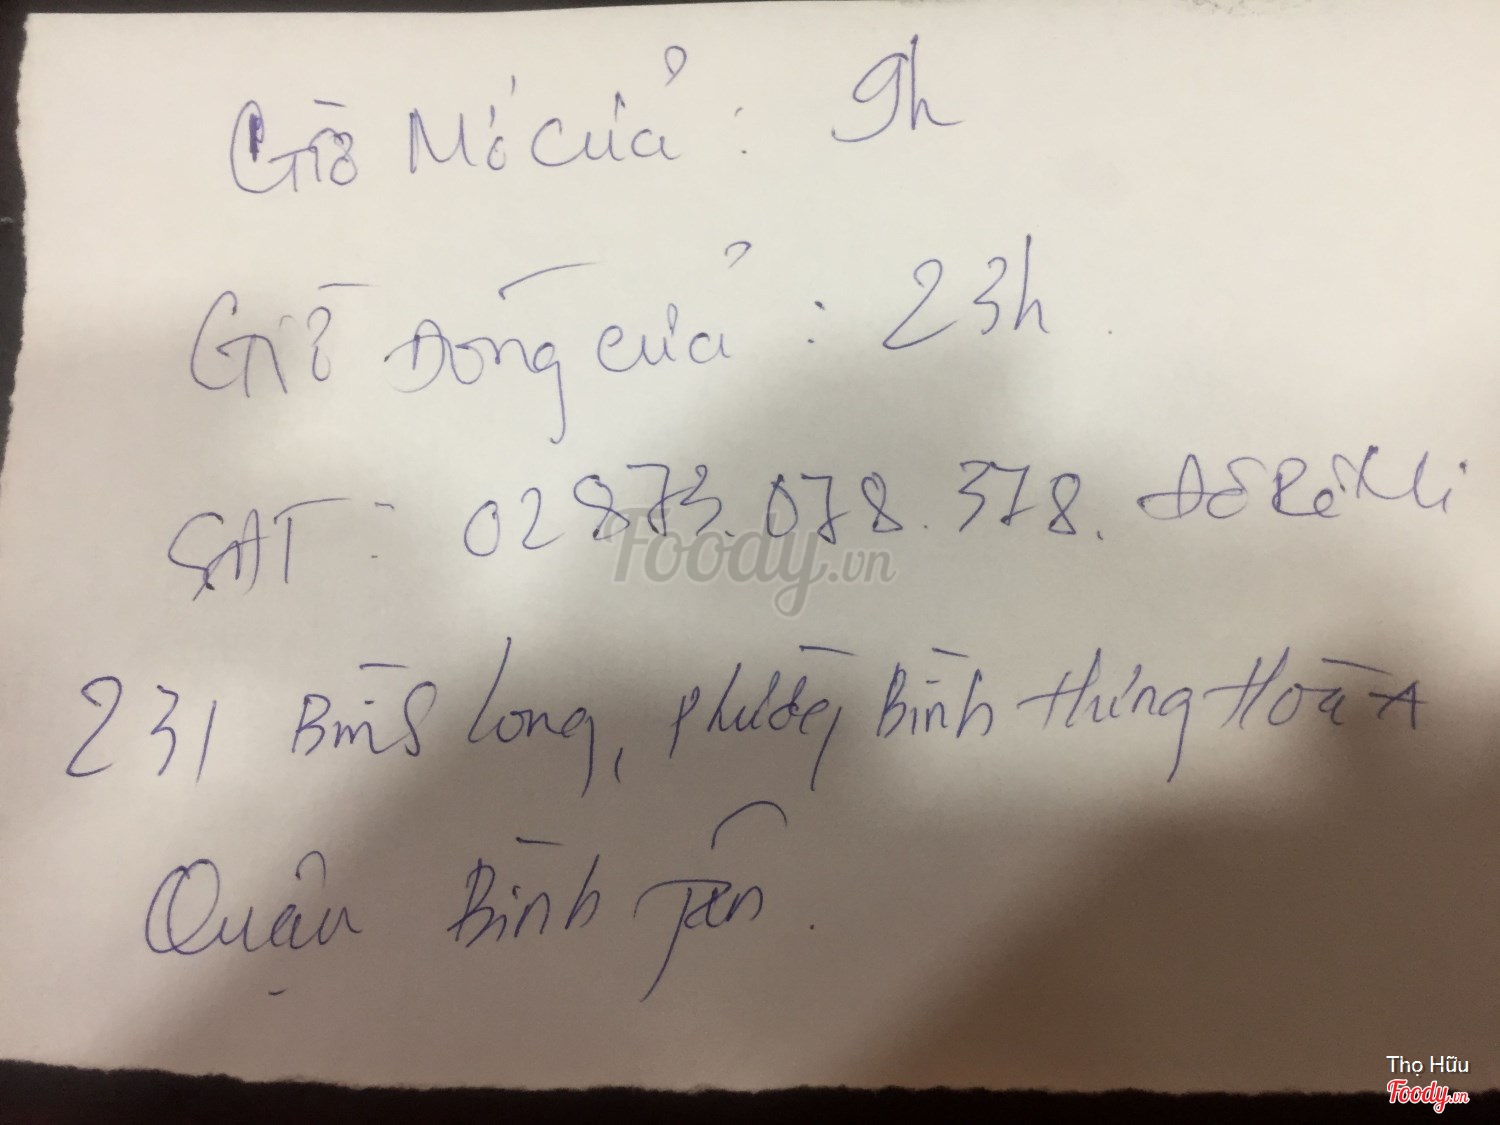 Giờ Mở cửa : 9h
Giờ Đóng cửa : 23h
SĐT : 02873.078.378.
Foody.vn
231 Bình Long, phường Bình Hưng Hoà A
Quận Bình Tân.
Thọ Hữu
Foody.vn